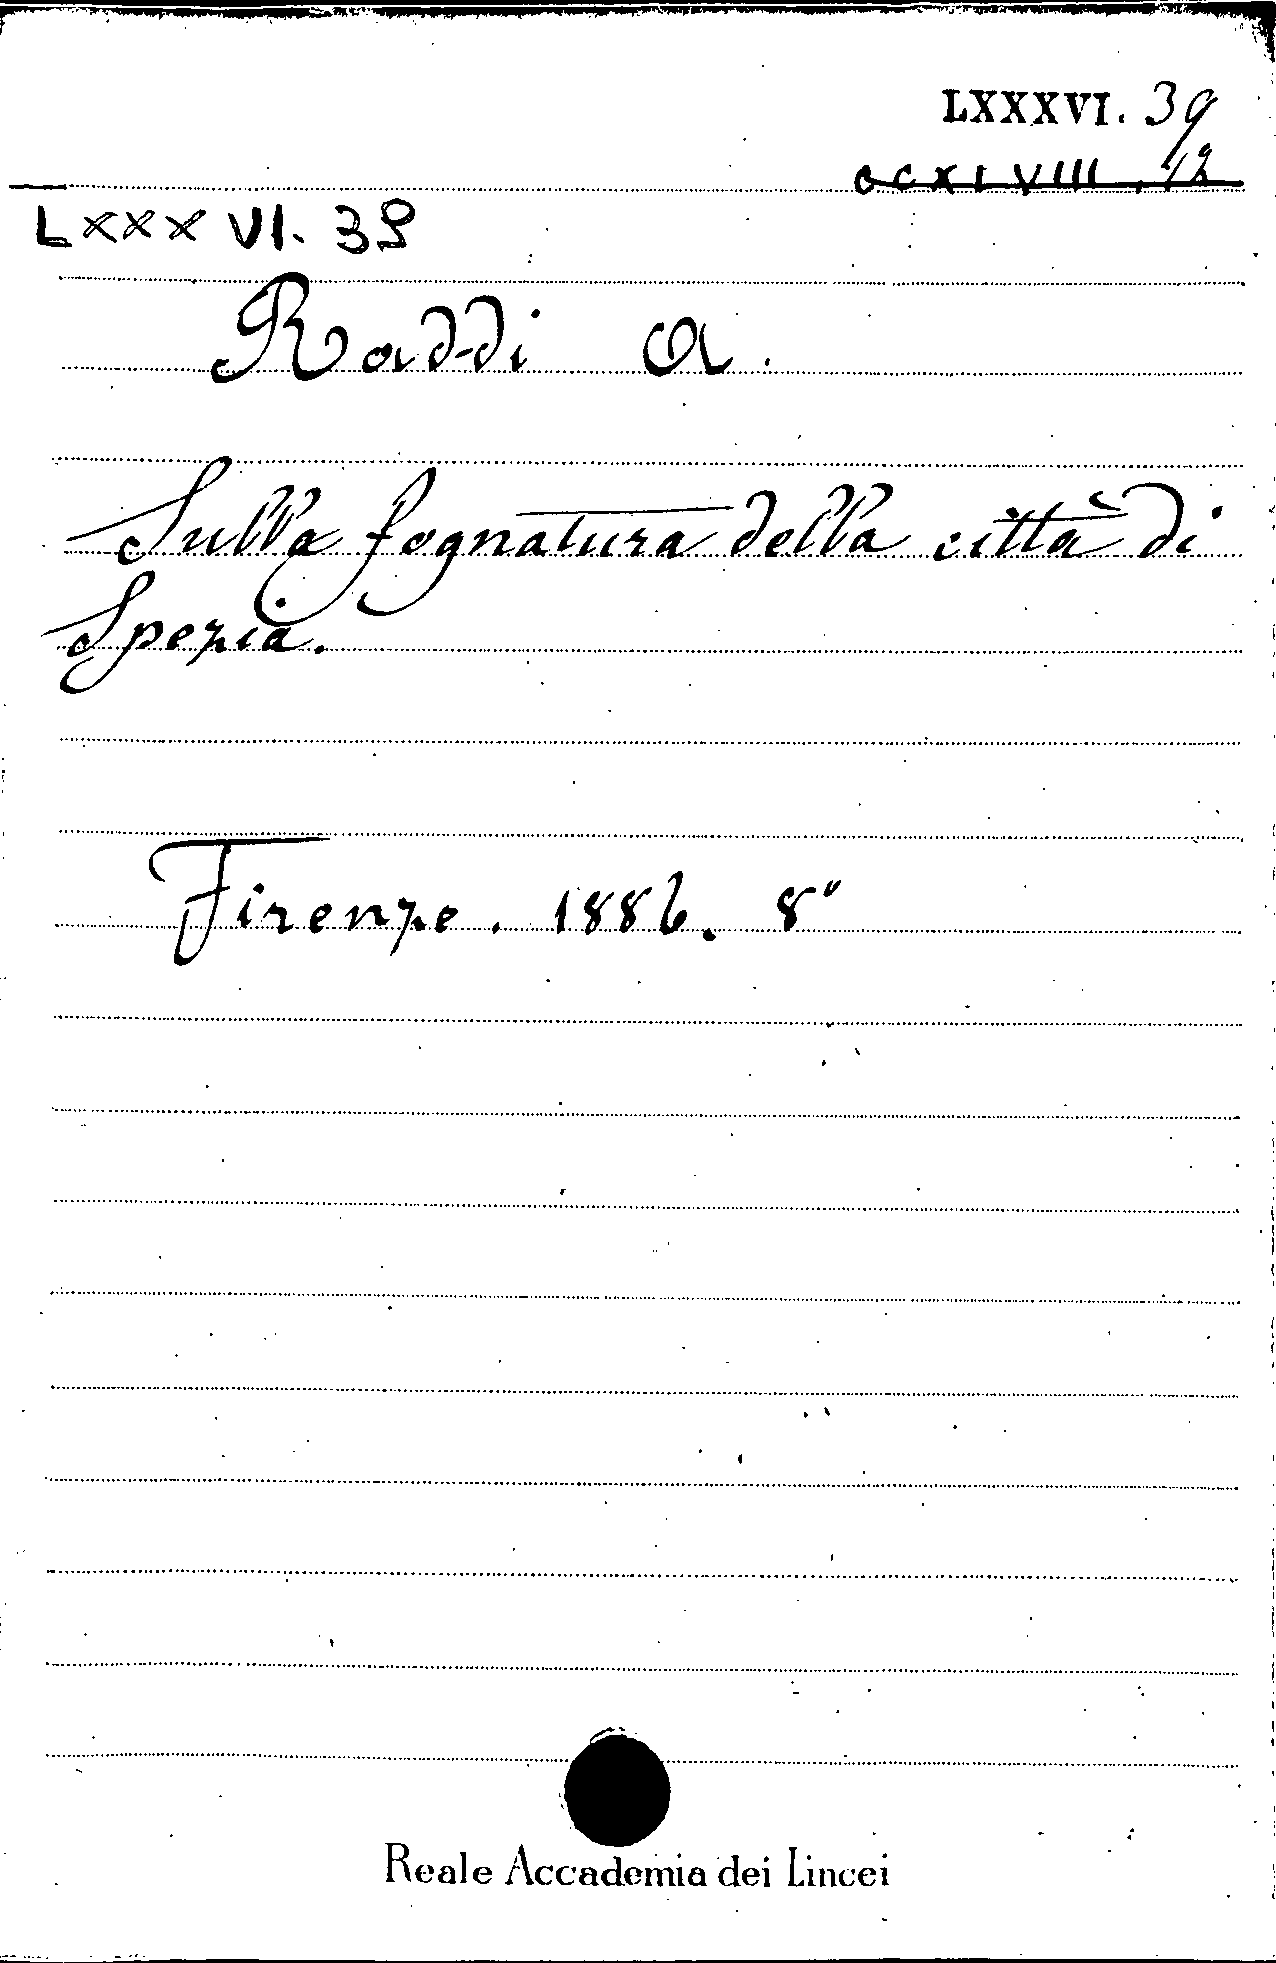 LXXXVI. 39
CCXLVIII. 12
LXXXVI. 39
Raddi A.
Sulla fognatura della città di
Spezia.
Firenze. 1886. 8°
Reale Accademia dei Lincei